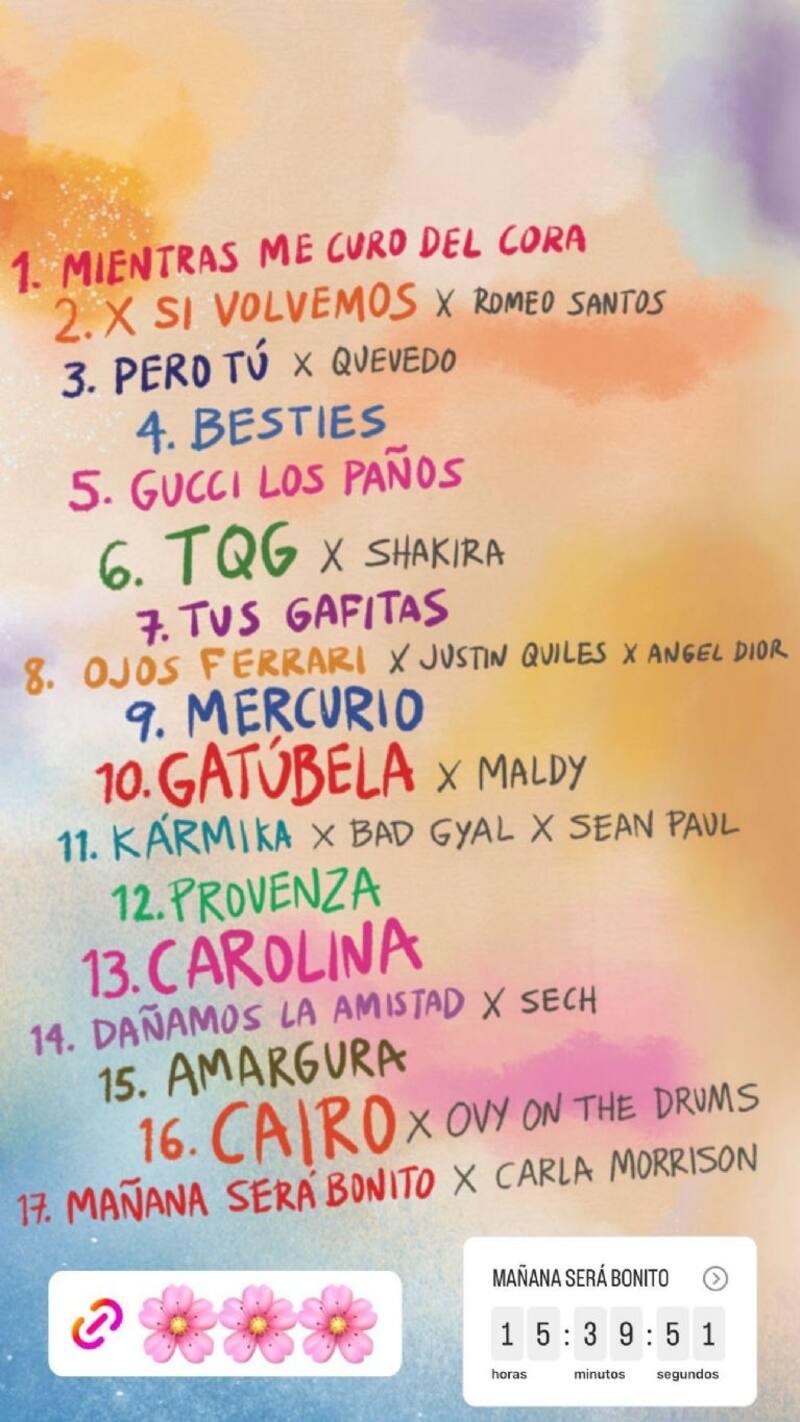 1. MIENTRAS ME CURO DEL CORA
2. X SI VOLVEMOS X ROMEO SANTOS
3. PERO TÚ X QUEVEDO
4. BESTIES
5. GUCCI LOS PAÑOS
6. TQG X SHAKIRA
7. TUS GAFITAS
8. OJOS FERRARI X JUSTIN QUILES X ANGEL DIOR
9. MERCURIO
10. GATÚBELA X MALDY
11. KÁRMIKA X BAD GYAL X SEAN PAUL
12. PROVENZA
13. CAROLINA
14. DAÑAMOS LA AMISTAD X SECH
15. AMARGURA
16. CAIRO X OVY ON THE DRUMS
17. MAÑANA SERÁ BONITO X CARLA MORRISON
MAÑANA SERÁ BONITO
15:39:51
horas minutos segundos